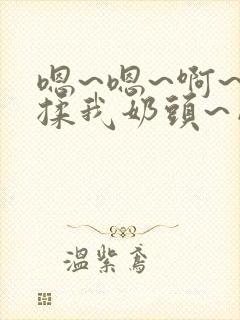 嗯~嗯~啊~
揉我奶頭~
溫紫鳶